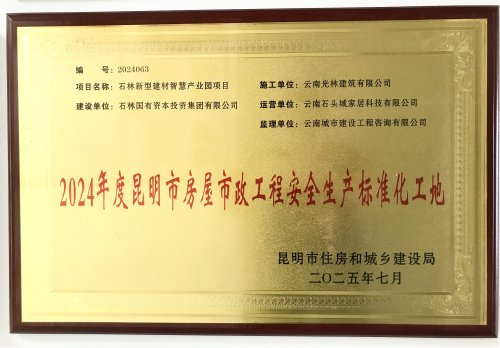 编　　号：2024063
项目名称：石林新型建材智慧产业园项目　施工单位：云南光林建筑有限公司
建设单位：石林国有资本投资集团有限公司　运营单位：云南石头城家居科技有限公司
监理单位：云南城市建设工程咨询有限公司
2024年度昆明市房屋市政工程安全生产标准化工地
昆明市住房和城乡建设局
二〇二五年七月